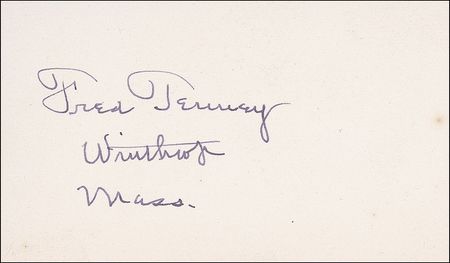 Fred Tenney
Winthrop
Mass.